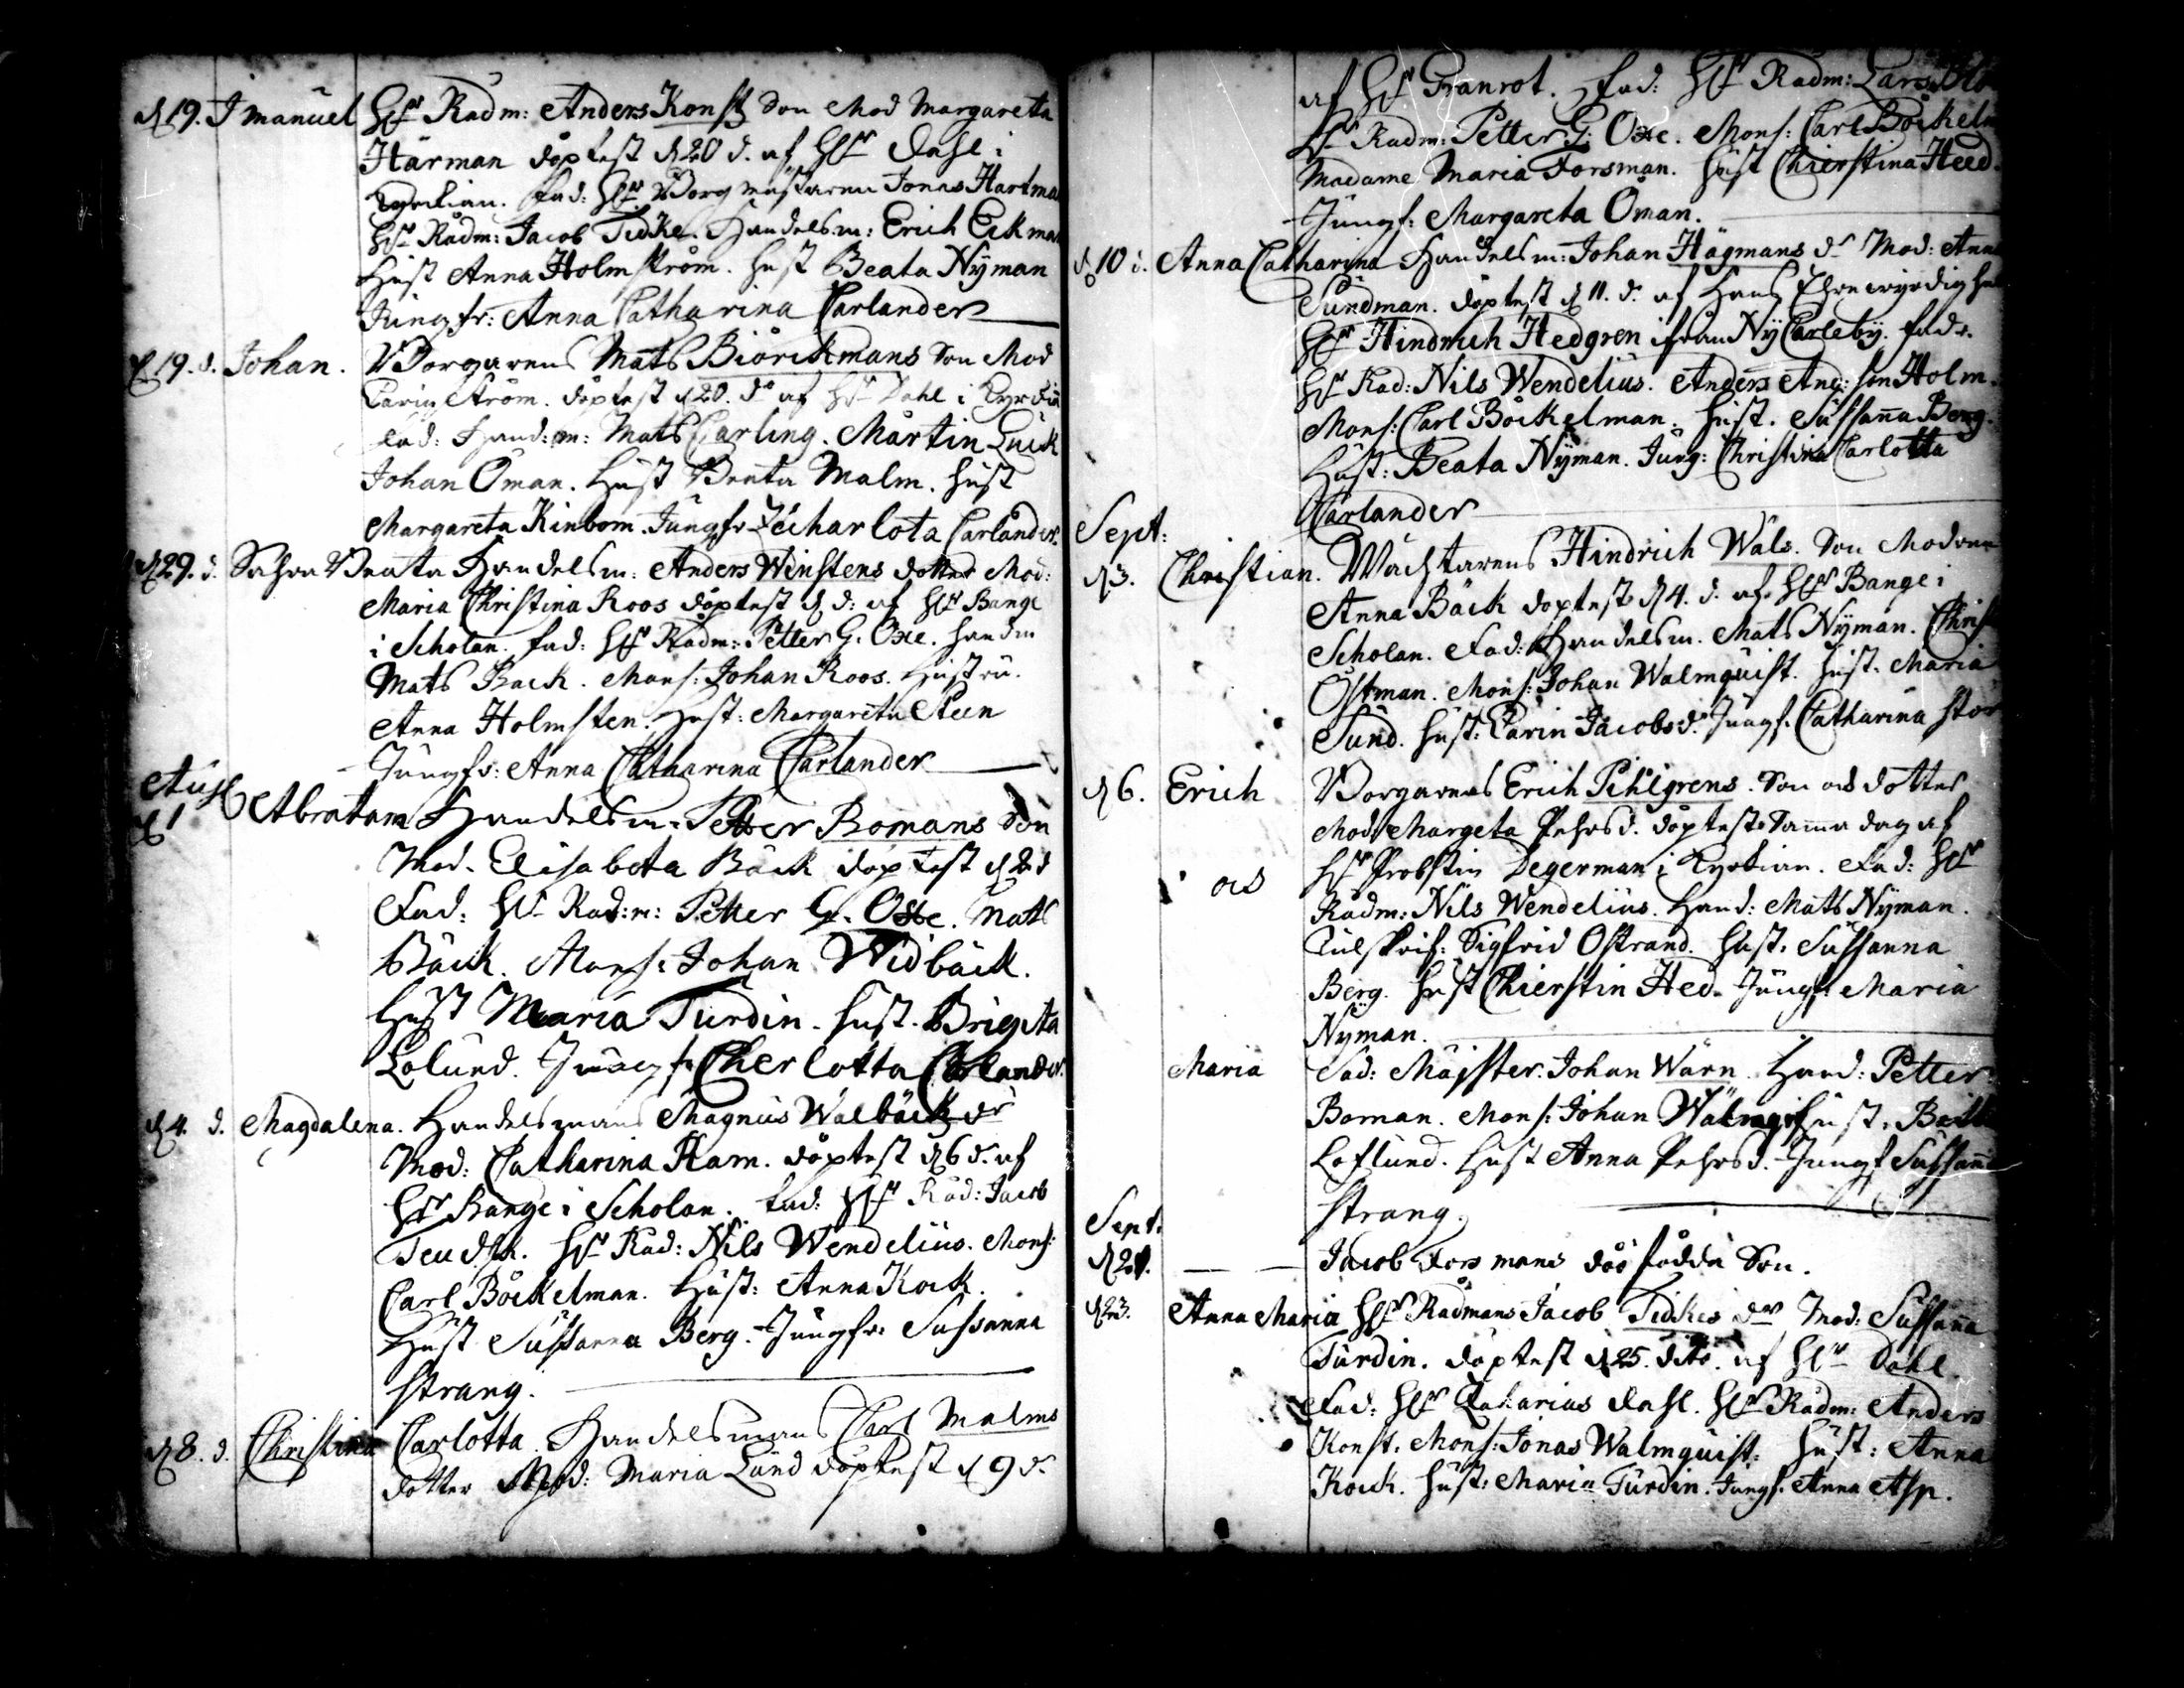 d 19. Imanuel Hr Radm: Anders Konst Son Mod Margareta
Härman döptest d 20 d. af Hr Dahl i
Kyrckian. Fad: Hr Borgmästaren Jonas Hartma
Hr Rådm: Jacob Tidke. Handelsm: Erich Eckman
Hust Anna Holmström. Hust Beata Nÿman
Jungfr: Anna Catharina Carlander
d 19. d. Johan. Borgarens Mats Biörckmans Son Mod
Carin Ström. döptest d 20. d. af Hr Dahl i Kyrckia
Fad: Hand: m: Mats Carling. Mårtin Luck
Johan Öman. Hust Beata Malm. Hust
Margareta Kinbom. Jungfr Charlota Carlander
d 29. d. Sahra Beata Handelsm: Anders Winstens dotter Mod:
Maria Christina Roos döptest d d: af Hr Bange
i Scholan. Fad: Hr Radm: Petter G. Oxe. Handm
Mats Back. Mons: Johan Roos. Hustru.
Anna Holmsten. Hust: Margareta Steen
Jungfr: Anna Catharina Carlander
Aug
d 1 Abraham Handelsm: Petter Bomans Son
Mod. Elisabeta Bäck döptest d 2 d
Fad: Hr Rad:m: Petter G. Oxe. Mats
Bäck. Mons: Johan Widbäck.
Hust Maria Turdin. Hust. Brigita
Lolund. Jungf: Cherlotta Carlander.
d 4. d. Magdalena. Handelsmans Magnus Walbäck dr
Mod: Catharina Ram. döptest d 6 d. af
Hr Bange i Scholan. Fad: Hr Råd: Jacob
Teudsk. Hr Rad: Nils Wendelius. Mons:
Carl Böckelman. Hust: Anna Kock.
Hust Sussanna Berg. Jungfr: Sussanna
Strang.
d 8. d. Christina Carlotta. Handelsmans Carl Malms
dotter Mod: Maria Lund döptest d 9 d.
af Hr Granrot. Fad: Hr Radm: Lars
Hr Radm: Petter G: Oxe. Mons: Carl Böckelm
Madame Maria Forsman. Hust Chierstina Heed.
Jungf: Margareta Öman.
d 10 d. Anna Catharina Handelsm: Johan Hägmans dr Mod: Anna
Sundman. döptest d 11. d. af Hans Ehrewyrdighe
Hr Hindrich Hedgren ifrån Nÿ Carlebÿ. Fadr.
Hr Rad: Nils Wendelius. Anders And:son Holm.
Mons: Carl Böckelman. Hust. Sussanna Berg.
Hust: Beata Nÿman. Jung: Christina Carlotta
Carlander
Sept:
d 3. Christian. Wächtarens Hindrich Wäls. Son Modren
Anna Bäck döptest d 4. d. af Hr Bange i
Scholan. Fad: Handelsm. Mats Nÿman. Christ
Östman. Mons: Johan Walmquist. Hust. Maria
Sund. Hust: Carin Jacobsd. Jungf. Catharina Stor
d 6. Erich Borgarens Erich Pihlgrens. Son och dotter
Mod: Margeta Pehrsd. döptest Samma dag af
och Hr Probstin Degerman i Kyrkian. Fad: Hr
Radm: Nils Wendelius. Hand: Mats Nÿman.
Tulskrif: Sigfrid Östrand. Hust. Sussanna
Berg. Hust Chierstin Hed. Jungf: Maria
Nyman.
Maria Fad: Mäjster: Johan Wärn. Hand: Petter
Boman. Mons: Johan Walmqist. Beata
Loflund. Hust Anna Pehrsd. Jungf Sussanna
Strang.
Sept:
d 21. — — Jacob Forsmans död födda Son.
d 23. Anna Maria Hr Rådmans Jacob Tidkes dr Mod: Sussanna
Turdin. döptest d 25. dito. af Hr Dahl.
Fad: Hr Zakarias Dahl. Hr Rådm: Anders
Konst. Mons: Jonas Walmquist. Hust: Anna
Kock. Hust: Maria Turdin. Jungf. Anna Asp.